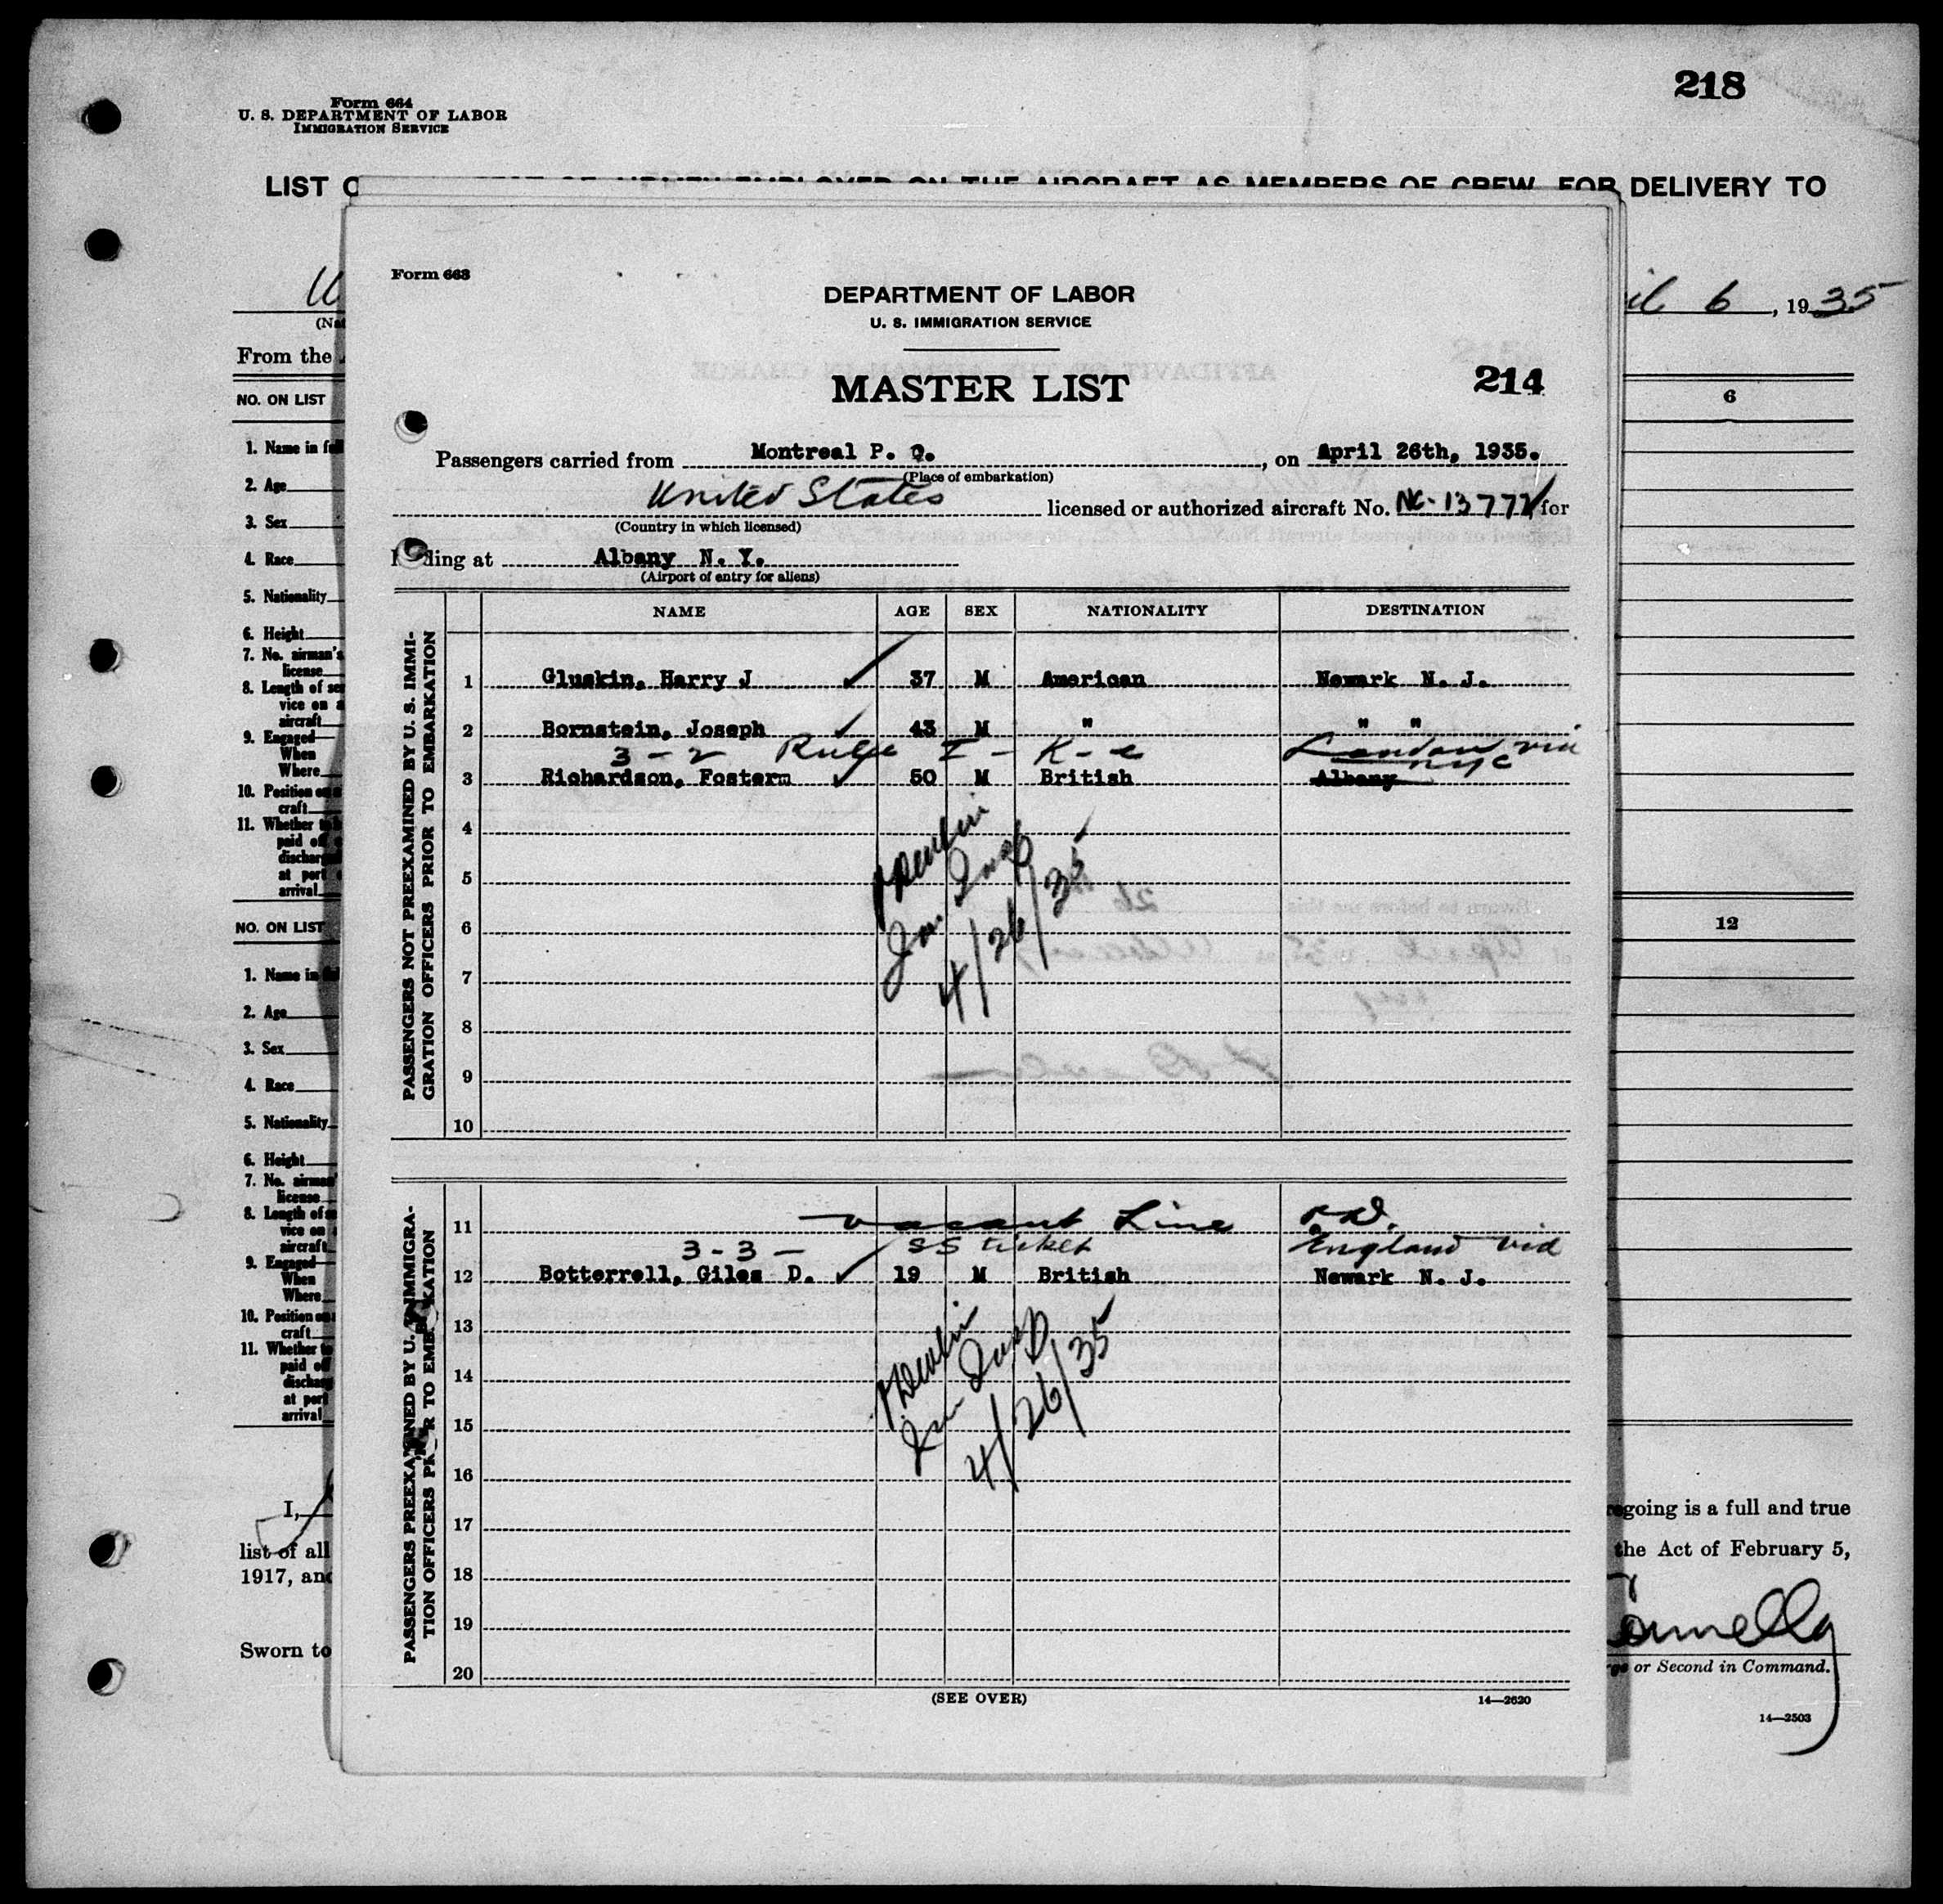 218
Form 664
U. S. DEPARTMENT OF LABOR
IMMIGRATION SERVICE
LIST EMPLOYED ON THE AIRCRAFT AS MEMBERS OF CREW, FOR DELIVERY TO
6, 1935
From the
NO. ON LIST
6
1. Name in
2. Age
3. Sex
4. Race
5. Nationality
6. Height
7. No. airman's
license
8. Length of
vice on
aircraft
9. Engaged
When
Where
10. Position
craft
11. Whether
paid
at port
arrival
NO. ON LIST
12
1. Name in
2. Age
3. Sex
4. Race
5. Nationality
6. Height
7. No.
license
8. Length of
vice on
aircraft
9. Engaged
When
Where
10. Position
craft
11. Whether
paid
at port
arrival
I,
going is a full and true
list of all
the Act of February 5,
1917,
Sworn to
or Second in Command.
14—2503
Form 663
DEPARTMENT OF LABOR
U. S. IMMIGRATION SERVICE
MASTER LIST
214
Passengers carried from Montreal P. Q., on April 26th, 1935.
(Place of embarkation)
United States licensed or authorized aircraft No. NC-13772 for
(Country in which licensed)
ding at Albany N. Y.
(Airport of entry for aliens)
NAME AGE SEX NATIONALITY DESTINATION
PASSENGERS NOT PREEXAMINED BY U. S. IMMI-
GRATION OFFICERS PRIOR TO EMBARKATION
1 Gluskin, Harry J 37 M American Newark N. J.
2 Bornstein, Joseph 43 M " " "
3-2 Rule I - K-e London via
nyc
3 Richardson, Fosterm 50 M British Albany
4
5
6
7
8
9
10
4/26/35
PASSENGERS PREEXAMINED BY U. S. IMMIGRA-
TION OFFICERS PRIOR TO EMBARKATION
11 vacant Line
3-3- SS ticket England via
12 Botterrell, Giles D. 19 M British Newark N. J.
13
14
15
16
17
18
19
20
4/26/35
(SEE OVER)
14—2620